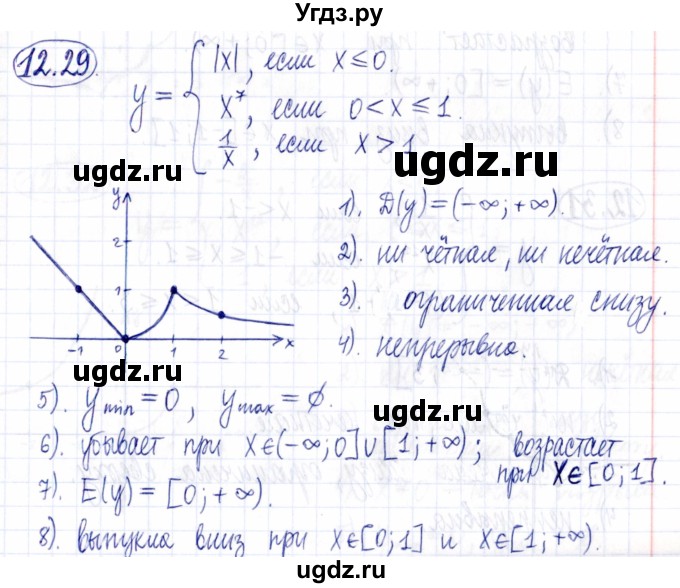 Угдз.ру
12.29.
y = { |x|, если x ≤ 0.
x⁷, если 0 < x ≤ 1.
1/x, если x > 1
ugdz.ru ugdz.ru
y
2
1
-1 0 1 2 x
1). D(y) = (-∞; +∞).
2). ни чётная, ни нечётная.
3). ограниченная снизу.
ugdz.ru
4). непрерывна.
ugdz.ru
5). y min = 0, y max = ∅.
6). убывает при x∈(-∞;0]∪[1;+∞); возрастает
при x∈[0;1].
ugdz.ru
7). E(y) = [0; +∞).
8). выпукла вниз при x∈[0;1] и x∈[1;+∞).
ugdz.ru